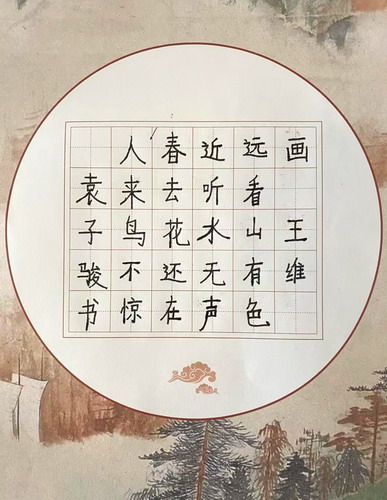 画 王维
远看山有色
近听水无声
春去花还在
人来鸟不惊
袁子骏书